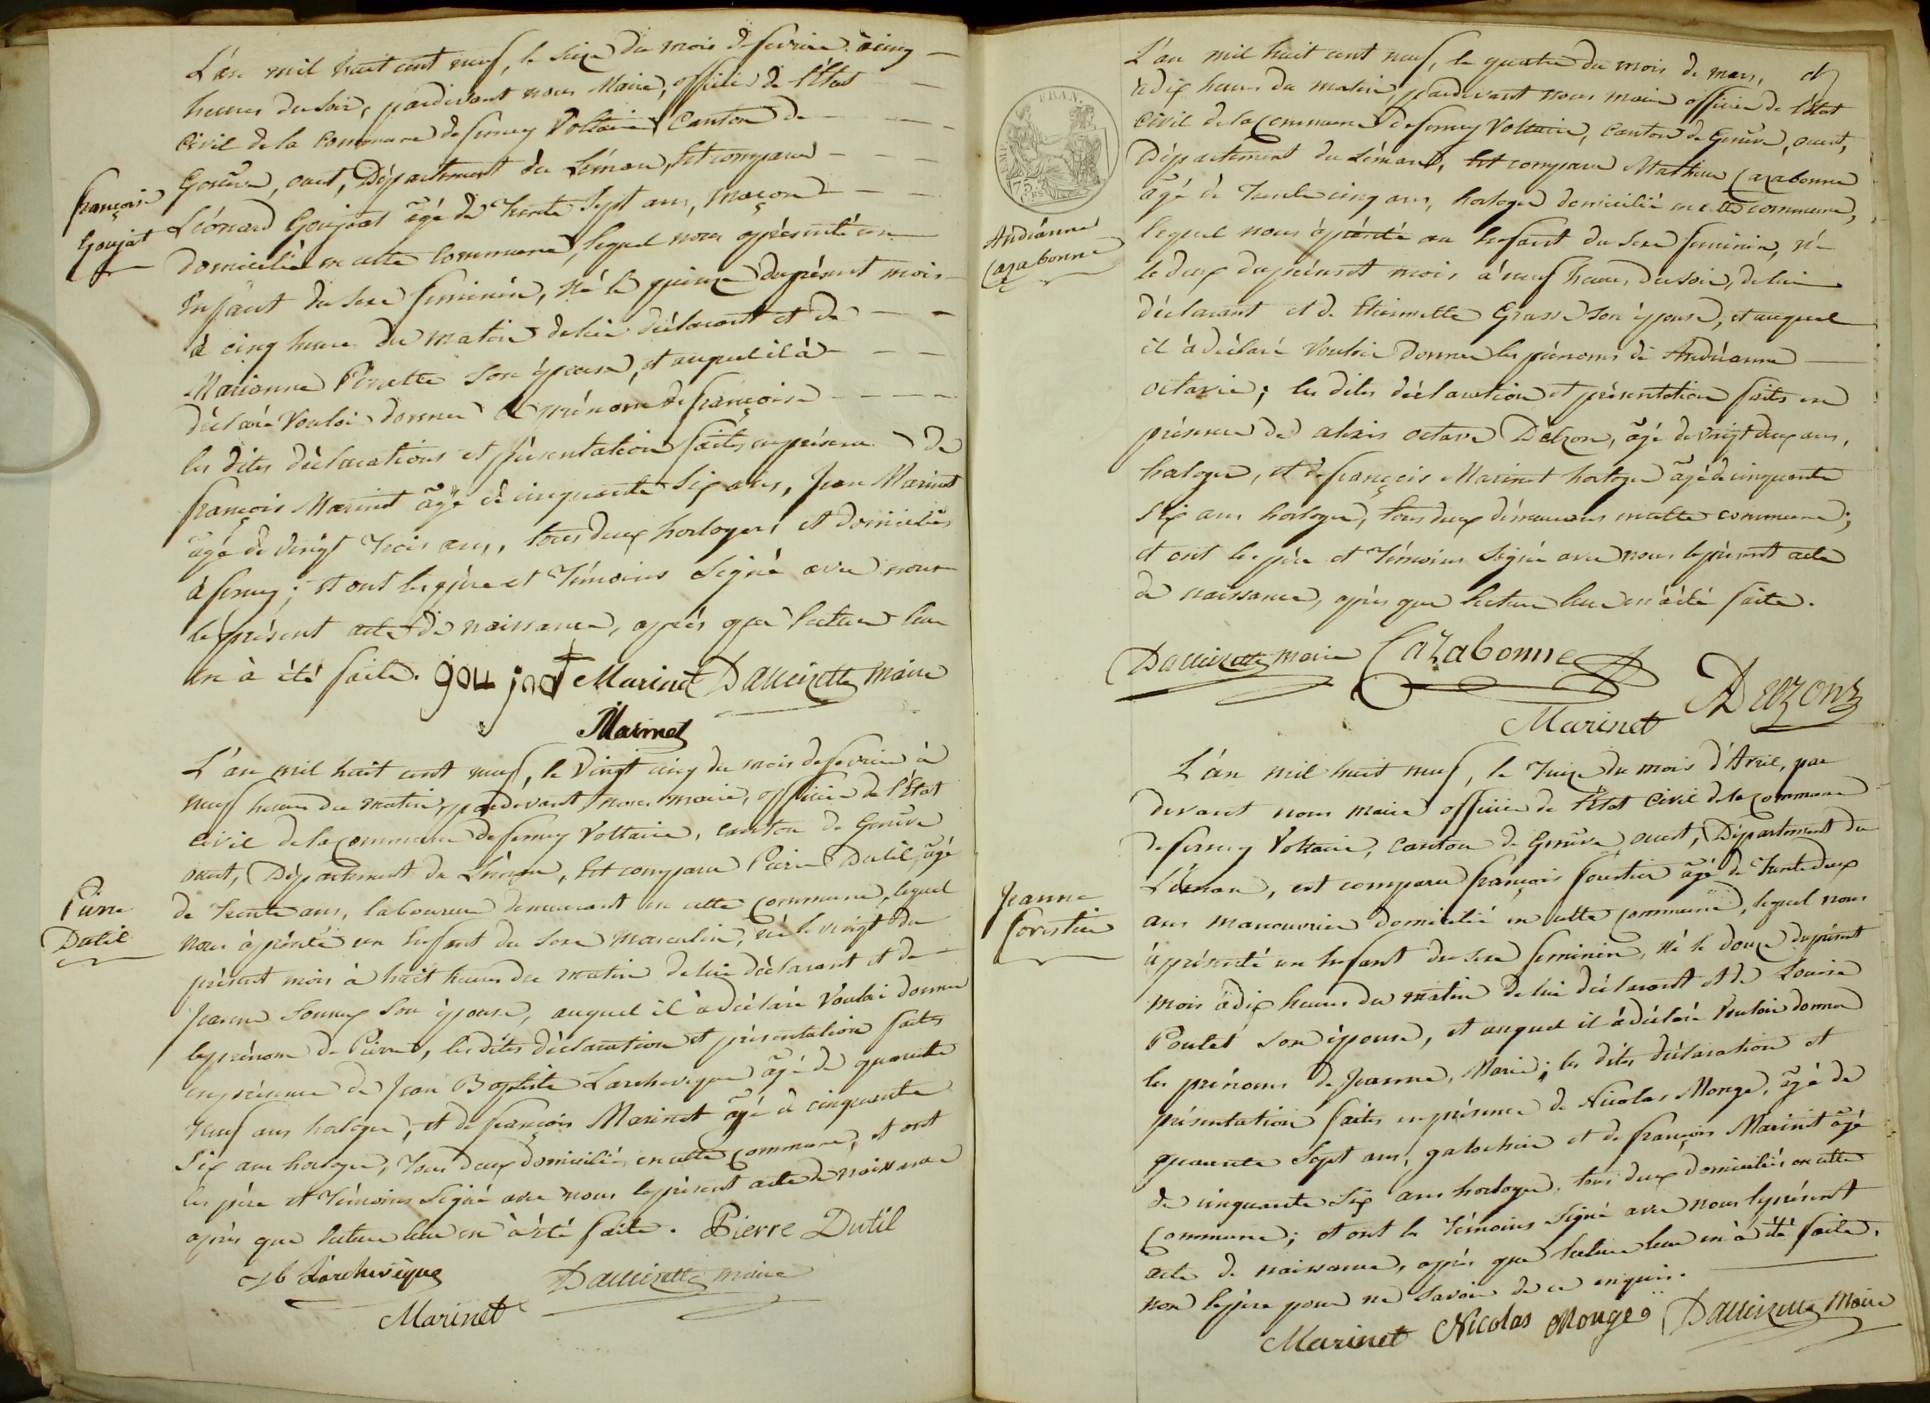 L'an mil huit cent neuf, le seize du mois de fevrier à cinq
heures du soir, pardevant nous Maire, officier de l'État
Civil de la commune de ferney Voltaire, Canton de
Genève, ouest, Département du Léman, Est comparu
françoise
Goujat
Léonard Goujat âgé de trente sept ans, maçon
domicilié en cette commune, lequel nous a présenté un
Enfant du sexe feminin, né le quinze du présent mois
à cinq heures du matin de lui déclarant et de
Marianne Perrette son épouse, et auquel il à
déclaré vouloir donner le prénom de françoise
les dites déclarations et présentation faites en présence de
françois Marinet âgé de cinquante six ans, Jean Marinet
âgé de vingt trois ans, tous deux horlogers et domiciliés
à ferney; et ont les père et témoins signé avec nous
le présent acte de naissance, après que lecture leur
en à été faite. goujat Marinet Dauvizette maire
Marinet
L'an mil huit cent neuf, le vingt cinq du mois de fevrier à
neuf heures du matin, pardevant nous maire, officier de l'État
civil de la commune de ferney Voltaire, canton de Genève
ouest, Département du Léman, Est comparu Pierre Dutil, âgé
Pierre
Dutil
de trente ans, laboureur demeurant en cette commune, lequel
nous à présenté un Enfant du sexe masculin, né le vingt du
présent mois à huit heures du matin de lui déclarant et de
Jeanne son épouse, auquel il à déclaré vouloir donner
le prénom de Pierre, les dites déclaration et présentation faites
en présence de Jean Baptiste Larcheveque âgé de quarante
neuf ans horloger, et de françois Marinet âgé de cinquante
six ans horloger, tous deux domiciliés en cette commune, et ont
les père et témoins signé avec nous le présent acte de naissance
après que lecture leur en à été faite. Pierre Dutil
Jb Larchevêque Dauvizette maire
Marinet
L'an mil huit cent neuf, le quatre du mois de mars,
à dix heures du matin, pardevant nous maire officier de l'État
Civil de la commune de ferney Voltaire, canton de Genève, ouest,
Département du Léman, Est comparu Mathieu Cazabonne
FRAN.
75
Andréanne
Cazabonne
âgé de trente cinq ans, horloger domicilié en cette commune,
lequel nous à présenté un Enfant du sexe feminin, né
le deux du présent mois à neuf heures du soir, de lui
déclarant et de Etiennette Grasse son épouse, et auquel
il à déclaré vouloir donner les prénoms de Andréanne
octavie; les dites déclaration et présentation faites en
présence de alexis octave Deuzon, âgé de vingt deux ans,
horloger, et de françois Marinet horloger âgé de cinquante
six ans horloger, tous deux demeurans en cette commune;
et ont les père et témoins signé avec nous le présent acte
de naissance, après que lecture leur en à été faite.
Dauvizette maire Cazabonne
Marinet ADeuzon
L'an mil huit neuf, le treize du mois d'Avril, par
devant nous maire officier de l'État Civil de la commune
de ferney Voltaire, canton de Genève, ouest, Département du
Léman, est comparu françois forestier âgé de trente deux
Jeanne
forestier
ans manouvrier domicilié en cette commune, lequel nous
à présenté un Enfant du sexe feminin, né le douze du présent
mois à dix heures du matin de lui déclarant et de Louise
Poutet son épouse, et auquel il à déclaré vouloir donner
les prénoms de Jeanne, Marie; les dites déclaration et
présentation faites en présence de Nicolas Monge, âgé de
quarante sept ans, galochier et de françois Marinet âgé
de cinquante six ans horloger, tous deux domiciliés en cette
commune; et ont les témoins signé avec nous le présent
acte de naissance, après que lecture leur en à été faite,
non le père pour ne savoir de ce enquis.
Marinet Nicolas Monge Dauvizette Maire